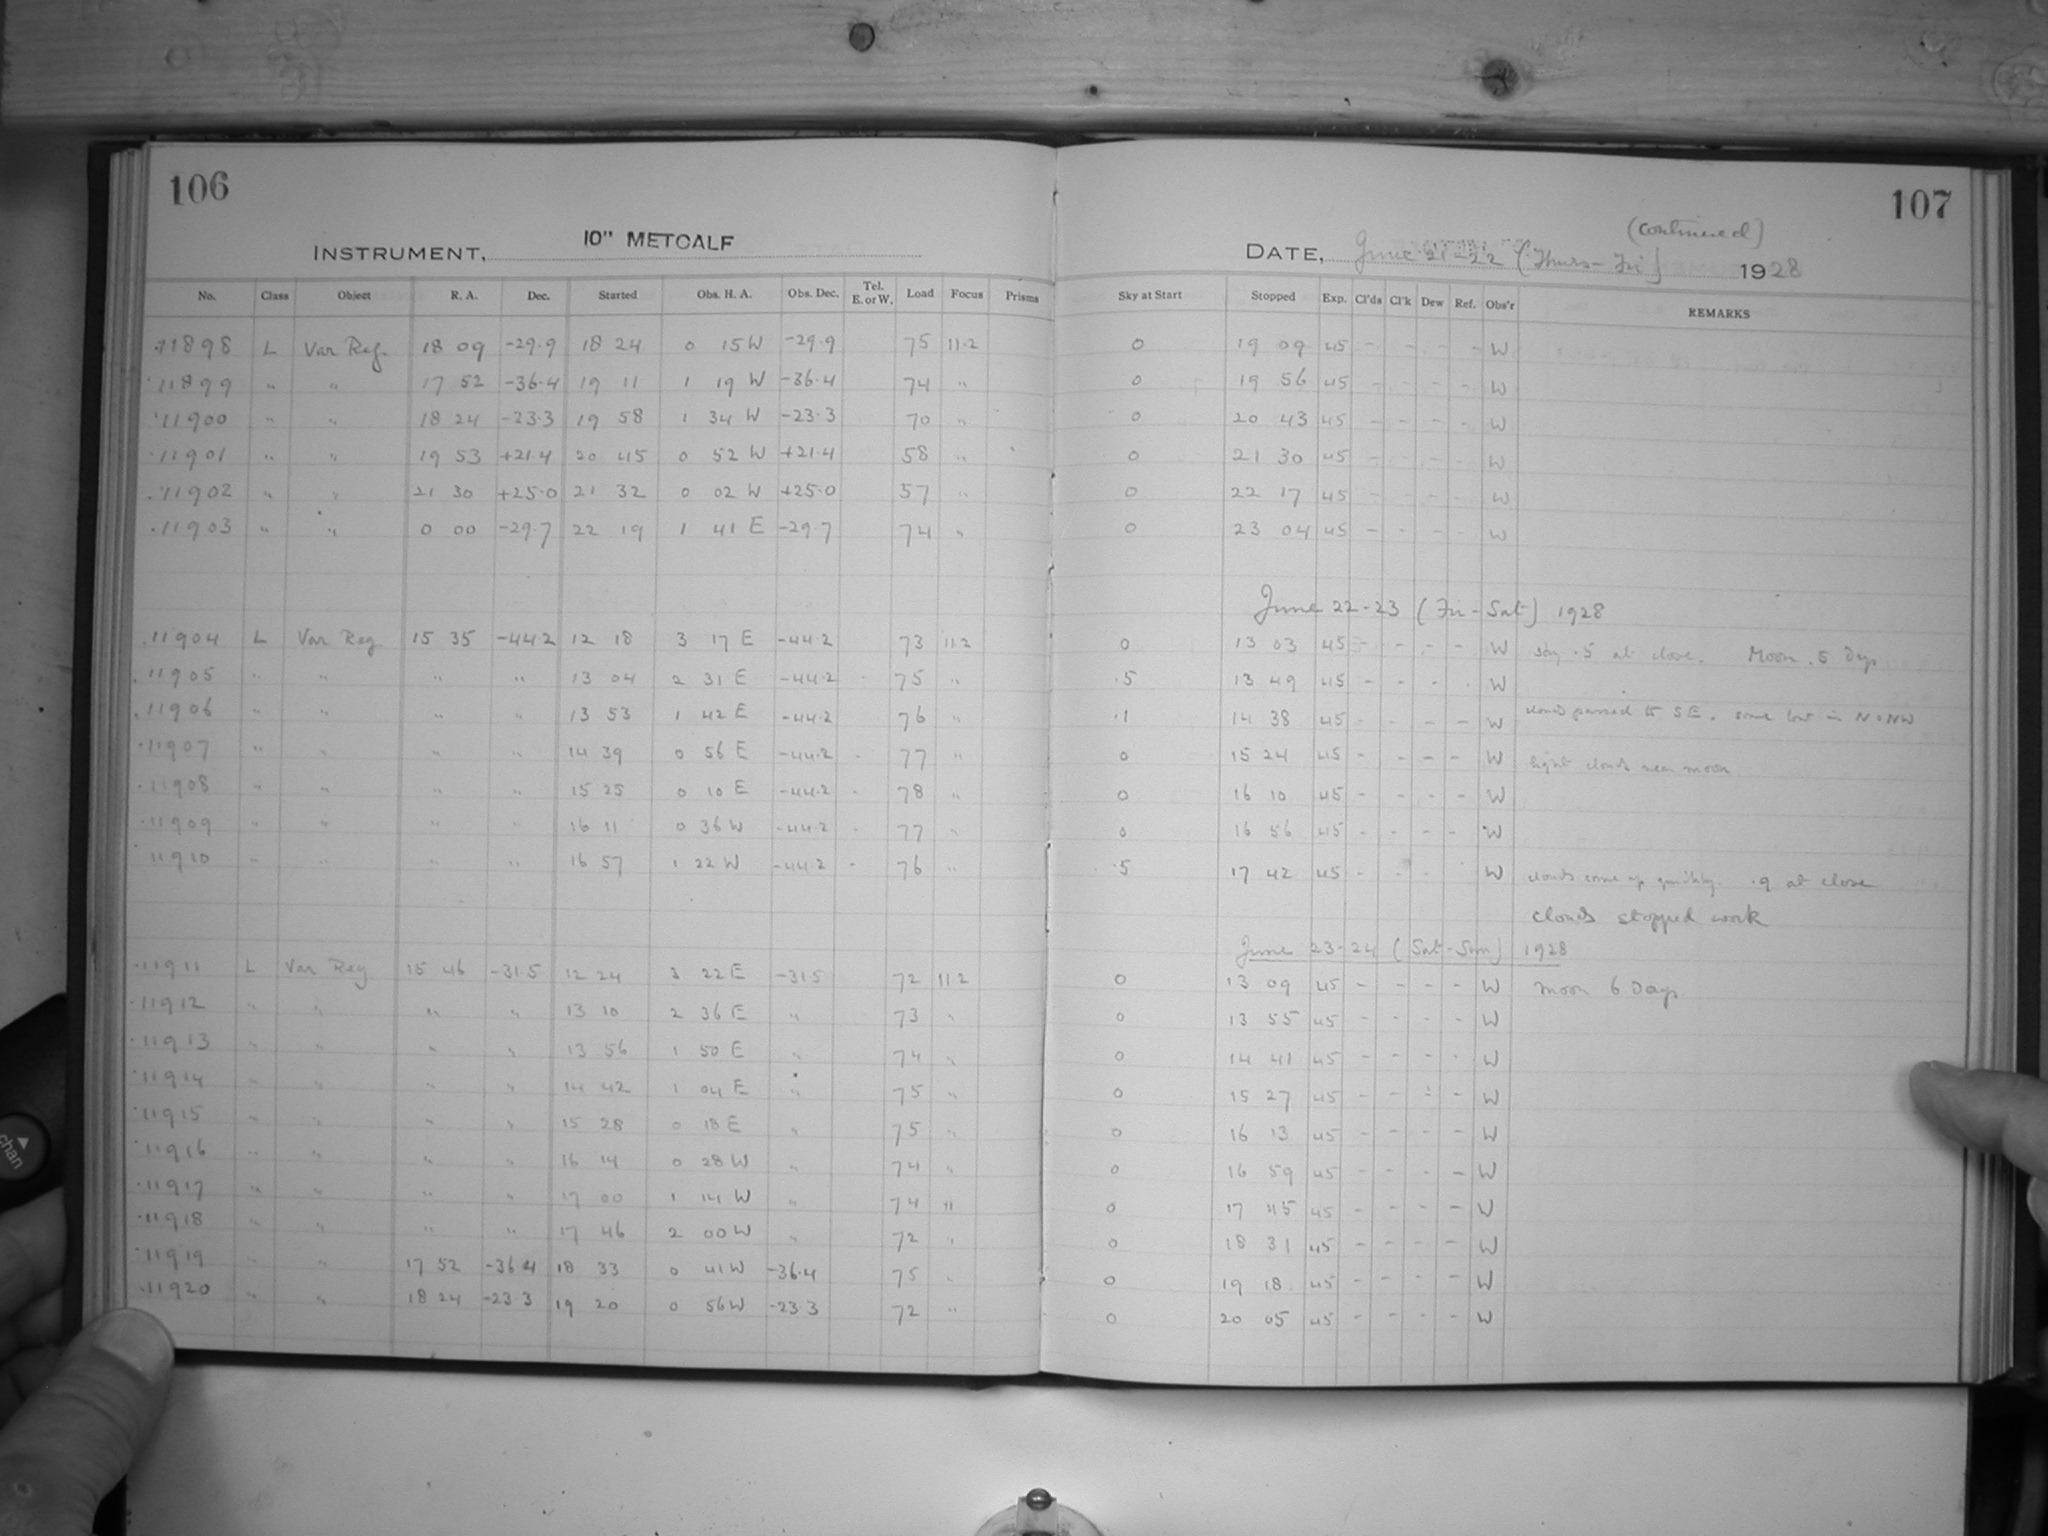 106
107
INSTRUMENT, 10" METCALF
(continued)
DATE, June 21-22 (Thurs-Fri) 1928
No. Class Object R. A. Dec. Started Obs. H. A. Obs. Dec. Tel. E. or W. Load Focus Prisms Sky at Start Stopped Exp. Cl'ds Cl'k Dew Ref. Obs'r REMARKS
11898 L Var Reg. 18 09 -29.9 18 24 0 15 W -29.9 75 11.2 0 19 09 45 - - - - W
11899 " " 17 52 -36.4 19 11 1 19 W -36.4 74 " 0 19 56 45 - - - - W
11900 " " 18 24 -23.3 19 58 1 34 W -23.3 70 " 0 20 43 45 - - - - W
11901 " " 19 53 +21.4 20 45 0 52 W +21.4 58 " 0 21 30 45 - - - - W
11902 " " 21 30 +25.0 21 32 0 02 W +25.0 57 " 0 22 17 45 - - - - W
11903 " " 0 00 -29.7 22 19 1 41 E -29.7 74 " 0 23 04 45 - - - - W
June 22-23 (Fri-Sat) 1928
11904 L Var Reg 15 35 -44.2 12 18 3 17 E -44.2 73 11.2 0 13 03 45 - - - - W sky .5 at close. Moon .5 Days
11905 " " " " 13 04 2 31 E -44.2 75 " .5 13 49 45 - - - . W
11906 " " " " 13 53 1 42 E -44.2 76 " .1 14 38 45 - - - - W clouds passed to SE. some low in N + NW
11907 " " " " 14 39 0 56 E -44.2 77 " 0 15 24 45 - - - - W light clouds near moon
11908 " " " " 15 25 0 10 E -44.2 78 " 0 16 10 45 - - - - W
11909 " " " " 16 11 0 36 W -44.2 77 " 0 16 56 45 - - - - W
11910 " " " " 16 57 1 22 W -44.2 76 " .5 17 42 45 - - - W clouds come up quickly. .9 at close
clouds stopped work
June 23-24 (Sat-Sun) 1928
11911 L Var Reg 15 46 -31.5 12 24 3 22 E -31.5 72 11.2 0 13 09 45 - - - - W moon 6 Days
11912 " " " " 13 10 2 36 E " 73 " 0 13 55 45 - - - - W
11913 " " " " 13 56 1 50 E " 74 " 0 14 41 45 - - - - W
11914 " " " " 14 42 1 04 E " 75 " 0 15 27 45 - - - - W
11915 " " " " 15 28 0 18 E " 75 " 0 16 13 45 - - - - W
11916 " " " " 16 14 0 28 W " 74 " 0 16 59 45 - - - - W
11917 " " " " 17 00 1 14 W " 74 " 0 17 45 45 - - - - W
11918 " " " " 17 46 2 00 W " 72 " 0 18 31 45 - - - - W
11919 " " 17 52 -36.4 18 33 0 41 W -36.4 75 " 0 19 18 45 - - - - W
11920 " " 18 24 -23.3 19 20 0 56 W -23.3 72 " 0 20 05 45 - - - - W
chan